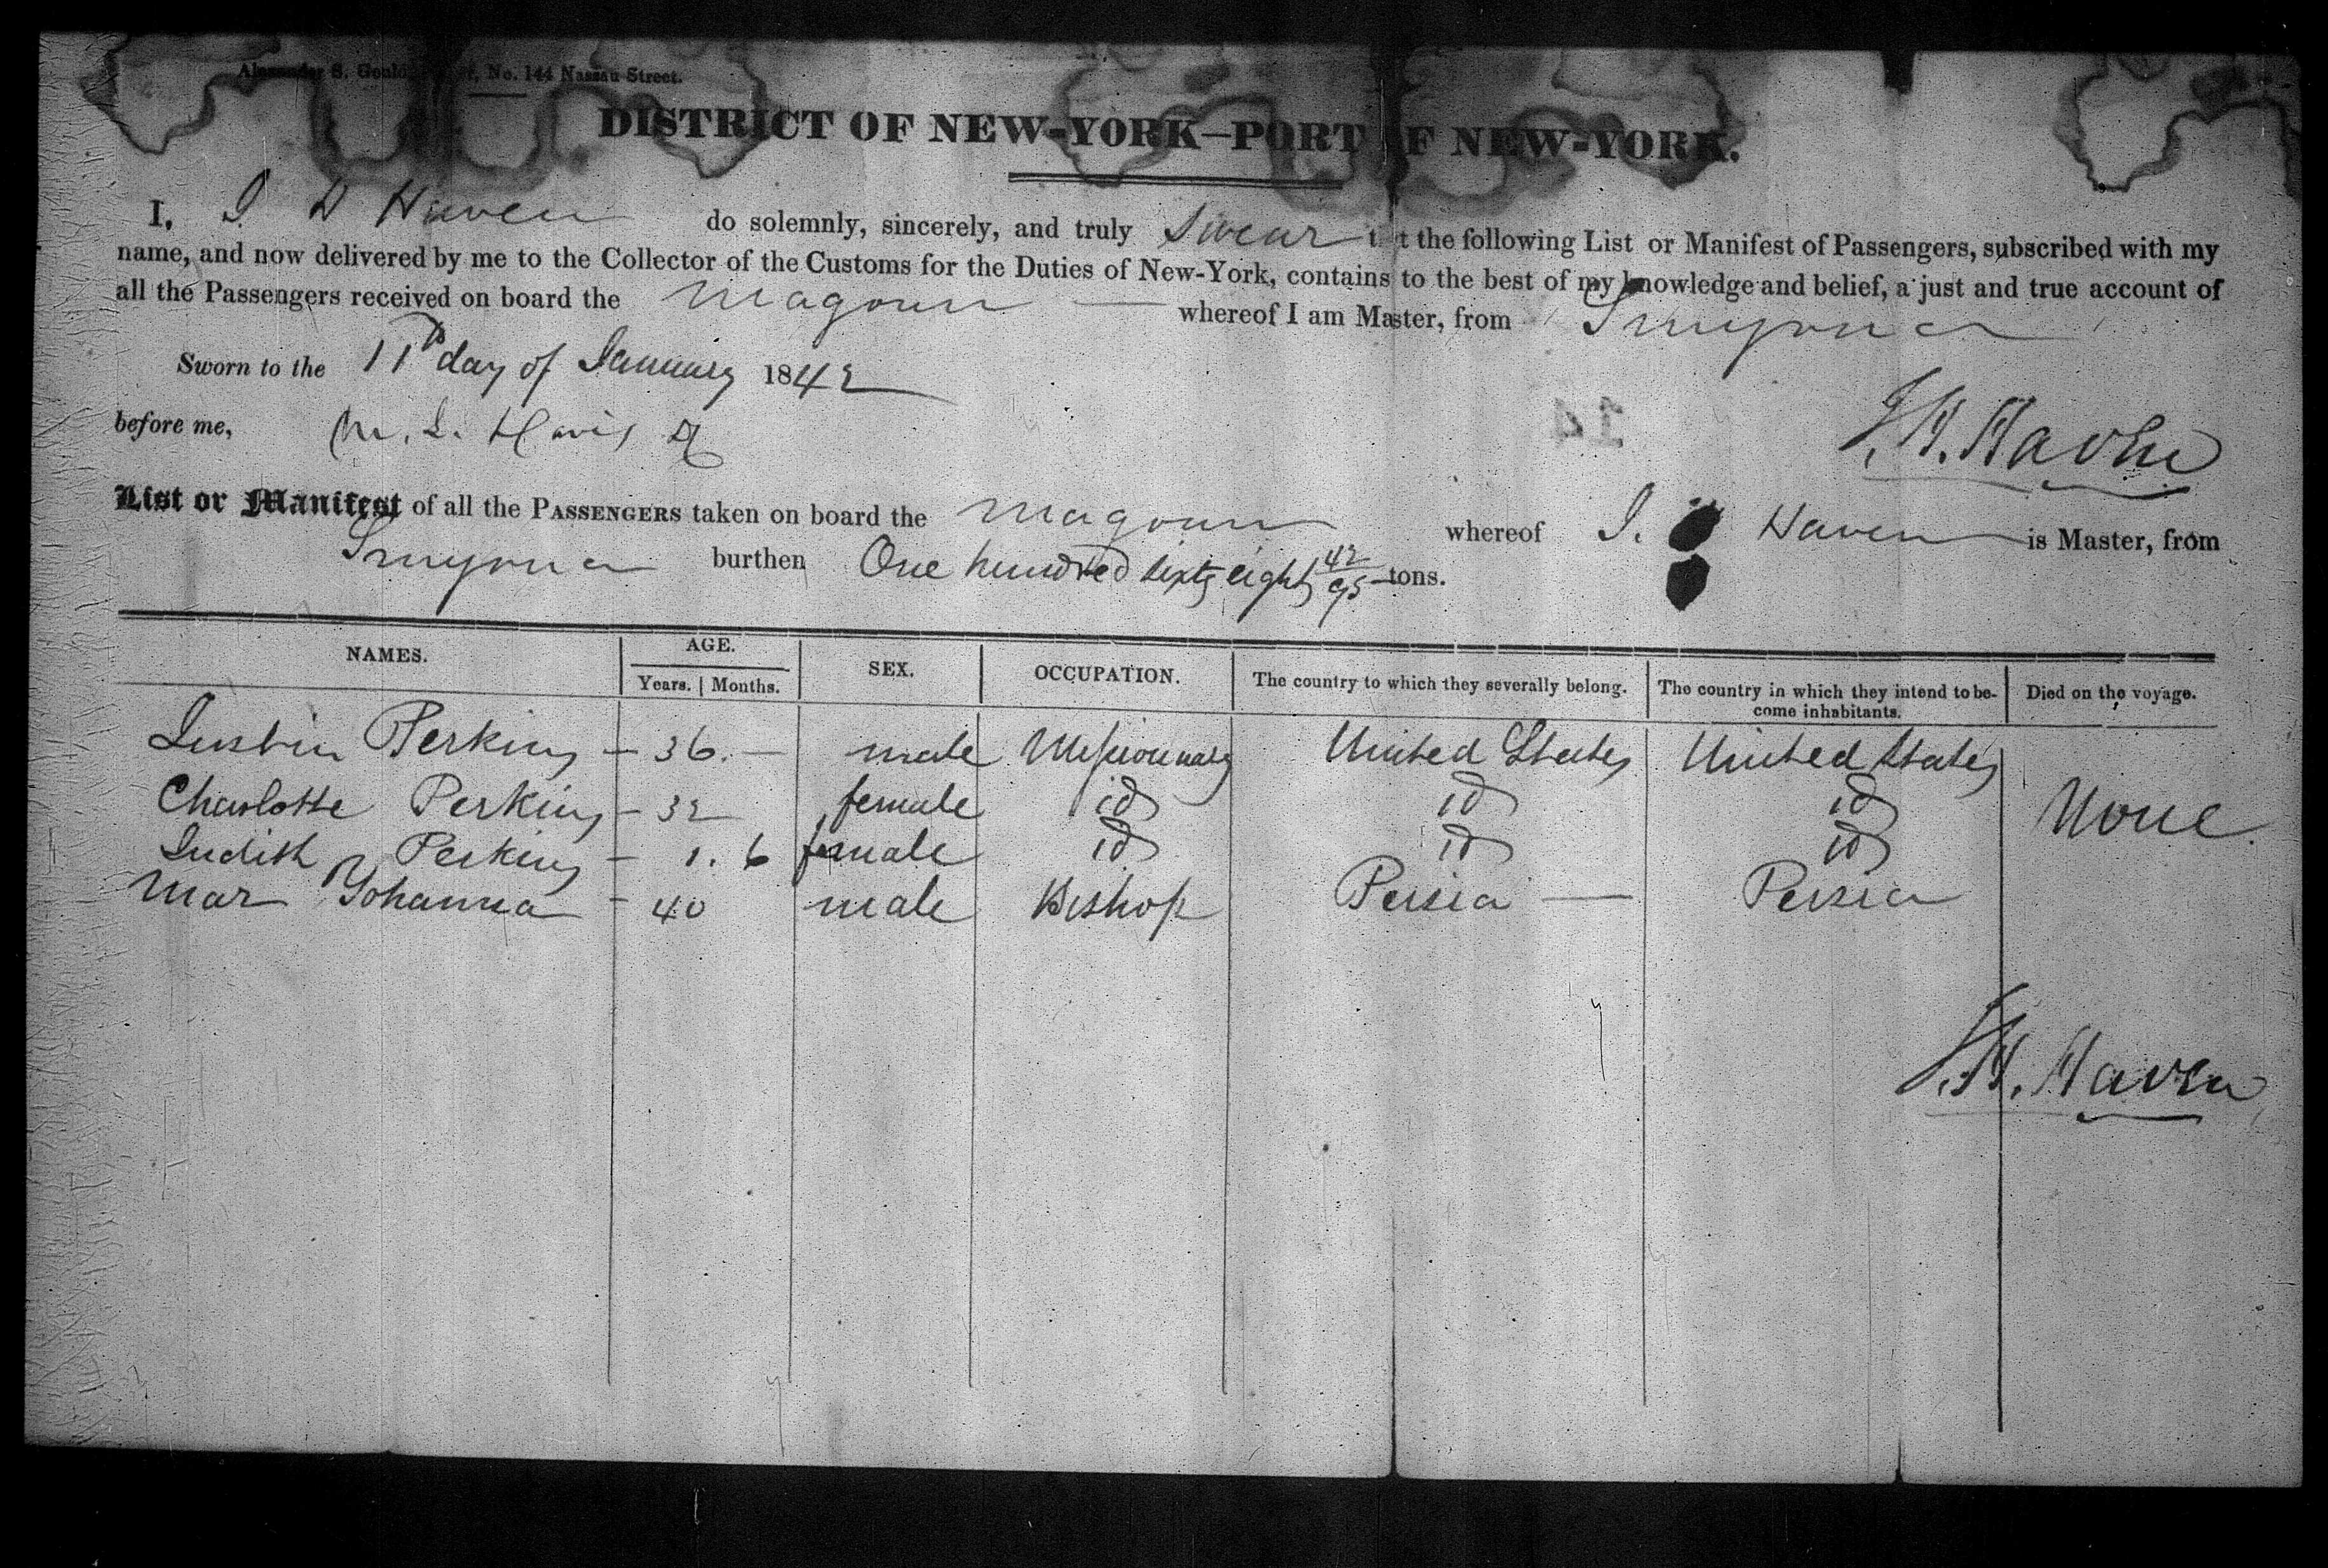 Alexander S. Gould, No. 144 Nassau Street.
DISTRICT OF NEW-YORK—PORT OF NEW-YORK.
I, I D Haven do solemnly, sincerely, and truly Swear that the following List or Manifest of Passengers, subscribed with my
name, and now delivered by me to the Collector of the Customs for the Duties of New-York, contains to the best of my knowledge and belief, a just and true account of
all the Passengers received on board the Magoun whereof I am Master, from Smyrna
Sworn to the 11th day of January 1842
before me, M. L. Davis
14
Haven
List or Manifest of all the PASSENGERS taken on board the Magoun whereof I. Haven is Master, from
Smyrna burthen One hundred sixty eight 42/95 tons.
NAMES. AGE. SEX. OCCUPATION. The country to which they severally belong. The country in which they intend to be- Died on the voyage.
Years. Months. come inhabitants.
Justin Perkins — 36. — male Missionary United States United States
Charlotte Perkins — 32 female id id id None
Judith Perkins — 1. 6 female id id id
Mar Yohanna — 40 male Bishop Persia — Persia
Haven